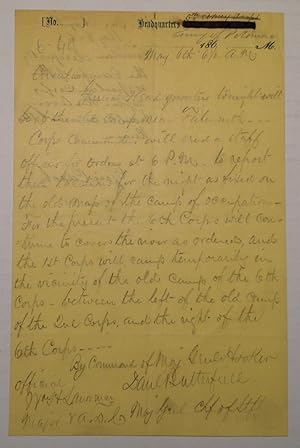 [No. ] Headquarters
Army of Potomac
186 M.
May 6th 6½ A.M.
Head quarters tonight will
be
Corps Commanders will send a staff
officer for orders at 6 P.M. to report
their locations for the night as fixed on
the old map of the camp of occupation—
For the present the 6th Corps will con-
tinue to cover the river as ordered, and
the 1st Corps will camp temporarily in
the vicinity of the old camp of the 6th
Corps— between the left of the old camp
of the 2nd Corps, and the right of the
6th Corps
By Command of Maj Genl Hooker
Official Danl Butterfield
Maj Genl Chf of Stff
Major & A.D.C.